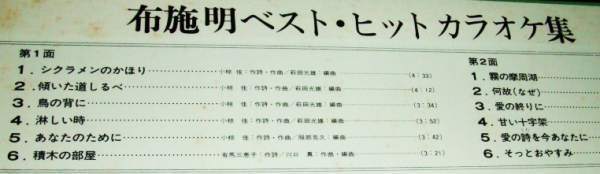 布施明ベスト・ヒットカラオケ集
第1面
1. シクラメンのかほり 小椋 佳：作詩・作曲／萩田光雄：編曲 (4：33)
2. 傾いた道しるべ 小椋 佳：作詩・作曲／萩田光雄：編曲 (4：12)
3. 鳥の背に 小椋 佳：作詩・作曲／萩田光雄：編曲 (3：34)
4. 淋しい時 小椋 佳：作詩・作曲／萩田光雄：編曲 (3：52)
5. あなたのために 小椋 佳：作詩・作曲／服部克久：編曲 (3：42)
6. 積木の部屋 有馬三恵子：作詩／川口 真：作曲・編曲 (3：21)
第2面
1. 霧の摩周湖
2. 何故(なぜ)
3. 愛の終りに
4. 甘い十字架
5. 愛の詩を今あなたに
6. そっとおやすみ